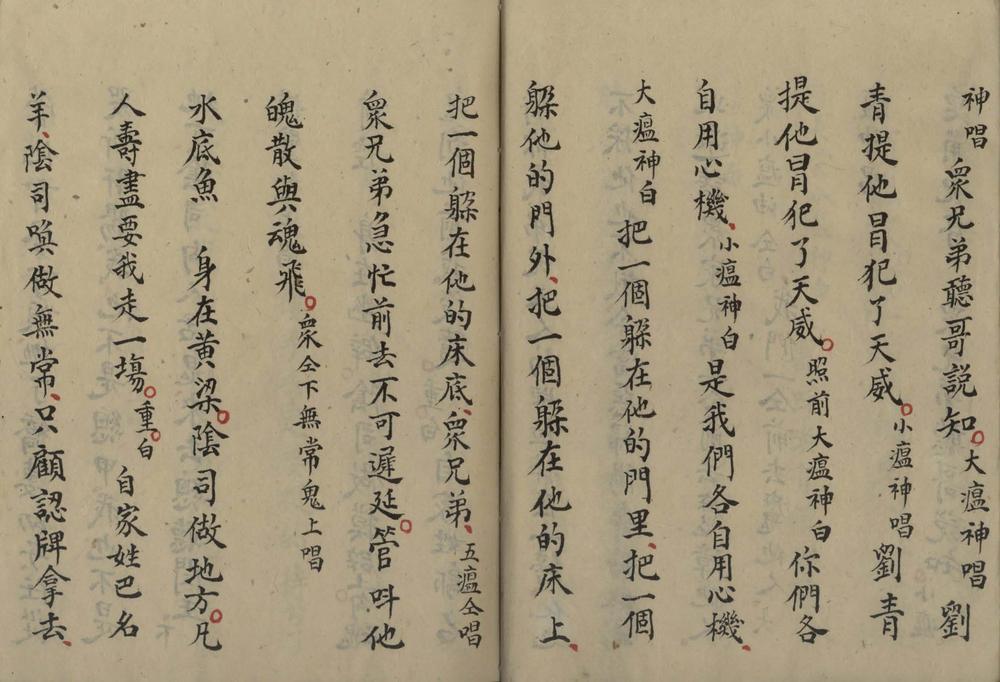 神唱 衆兄弟聽哥説知。大瘟神唱 劉
青提他冒犯了天威。小瘟神唱 劉青
提他冒犯了天威。照前大瘟神白 你們各
自用心機、小瘟神白 是我們各自用心機、
大瘟神白 把一個躱在他的門里、把一個
躱他的門外、把一個躱在他的床上、
把一個躱在他的床底、衆兄弟、五瘟仝唱
衆兄弟急忙前去不可遲延。管呌他
魄散與魂飛。衆仝下無常鬼上唱
水底魚 身在黄梁。陰司做地方。凡
人壽盡要我走一塲。重。白 自家姓巴名
羊、陰司喚做無常、只顧認牌拿去、